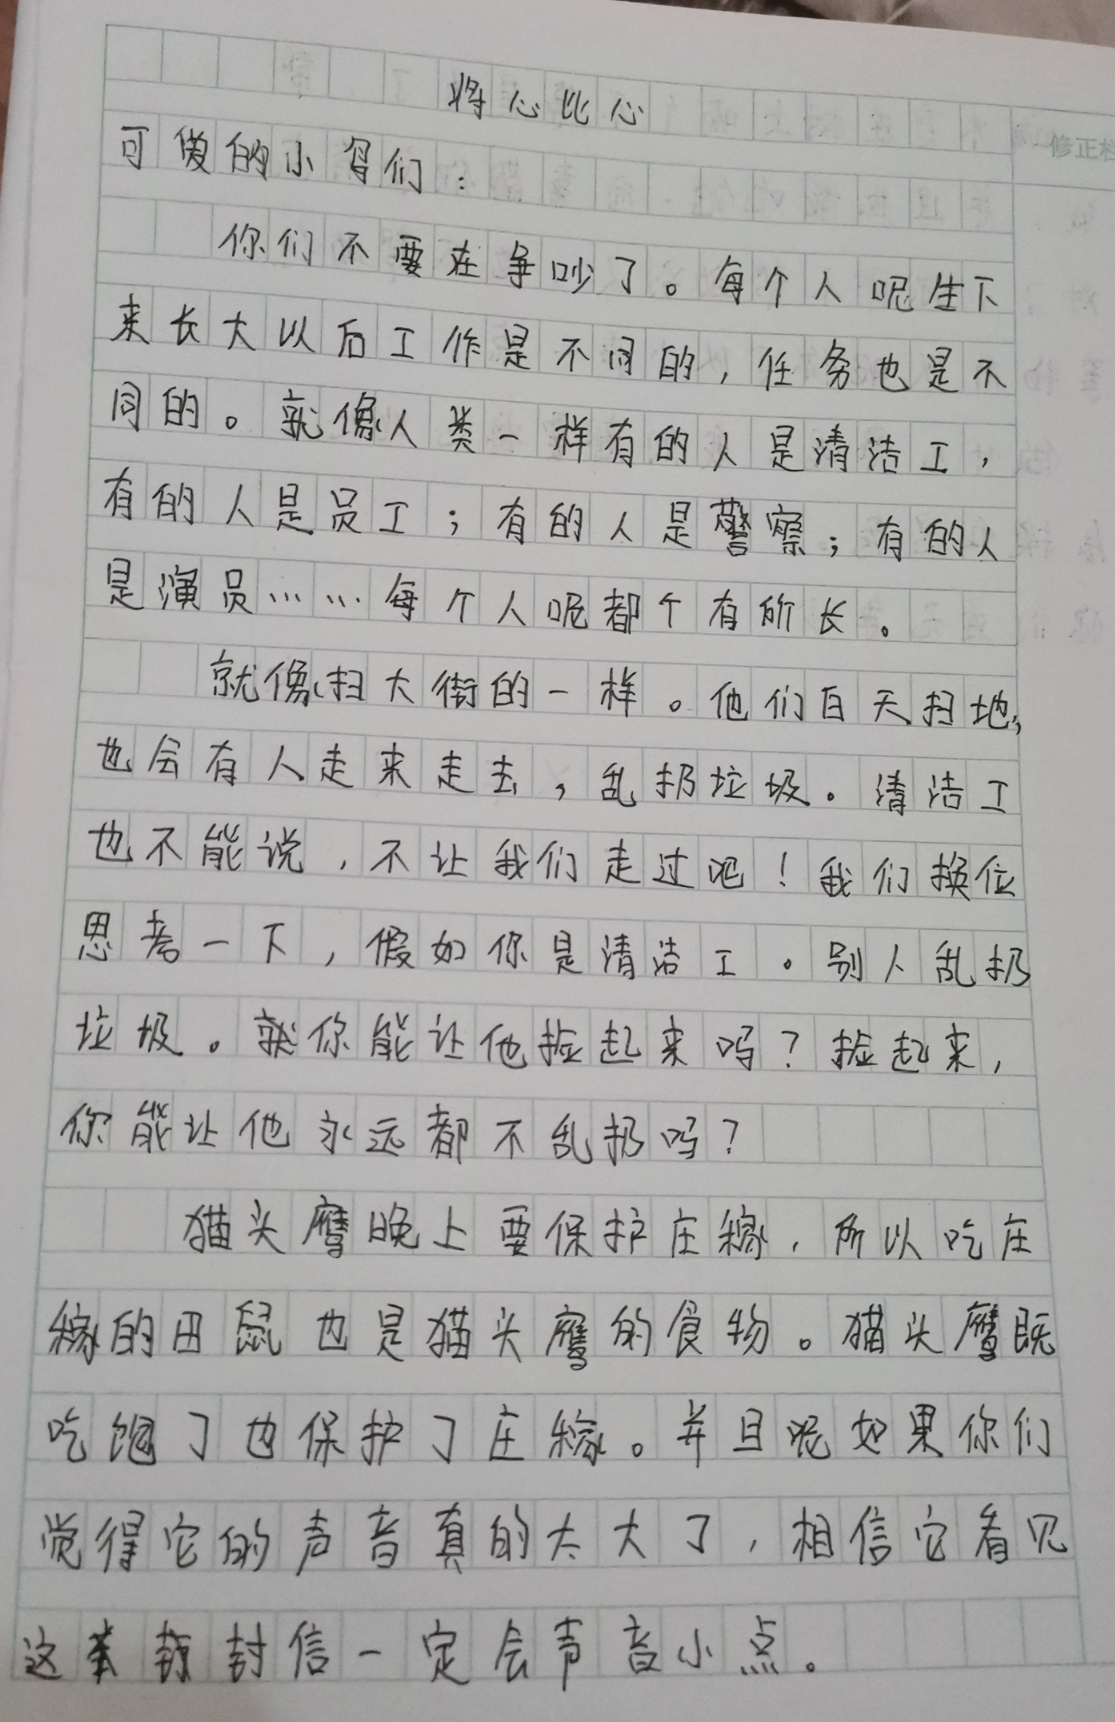 将心比心
修正栏
可俊的小鸟们：
你们不要在争吵了。每个人呢生下
来长大以后工作是不同的，任务也是不
同的。就像人类一样有的人是清洁工，
有的人是员工；有的人是警察；有的人
是演员……每个人呢都个有所长。
就像扫大街的一样。他们白天扫地，
也会有人走来走去，乱扔垃圾。清洁工
也不能说，不让我们走过吧！我们换位
思考一下，假如你是清洁工。别人乱扔
垃圾。就你能让他捡起来吗？捡起来，
你能让他永远都不乱扔吗？
猫头鹰晚上要保护庄稼，所以吃庄
稼的田鼠也是猫头鹰的食物。猫头鹰既
吃饱了也保护了庄稼。并且呢如果你们
觉得它的声音真的太大了，相信它看见
这封信一定会声音小点。